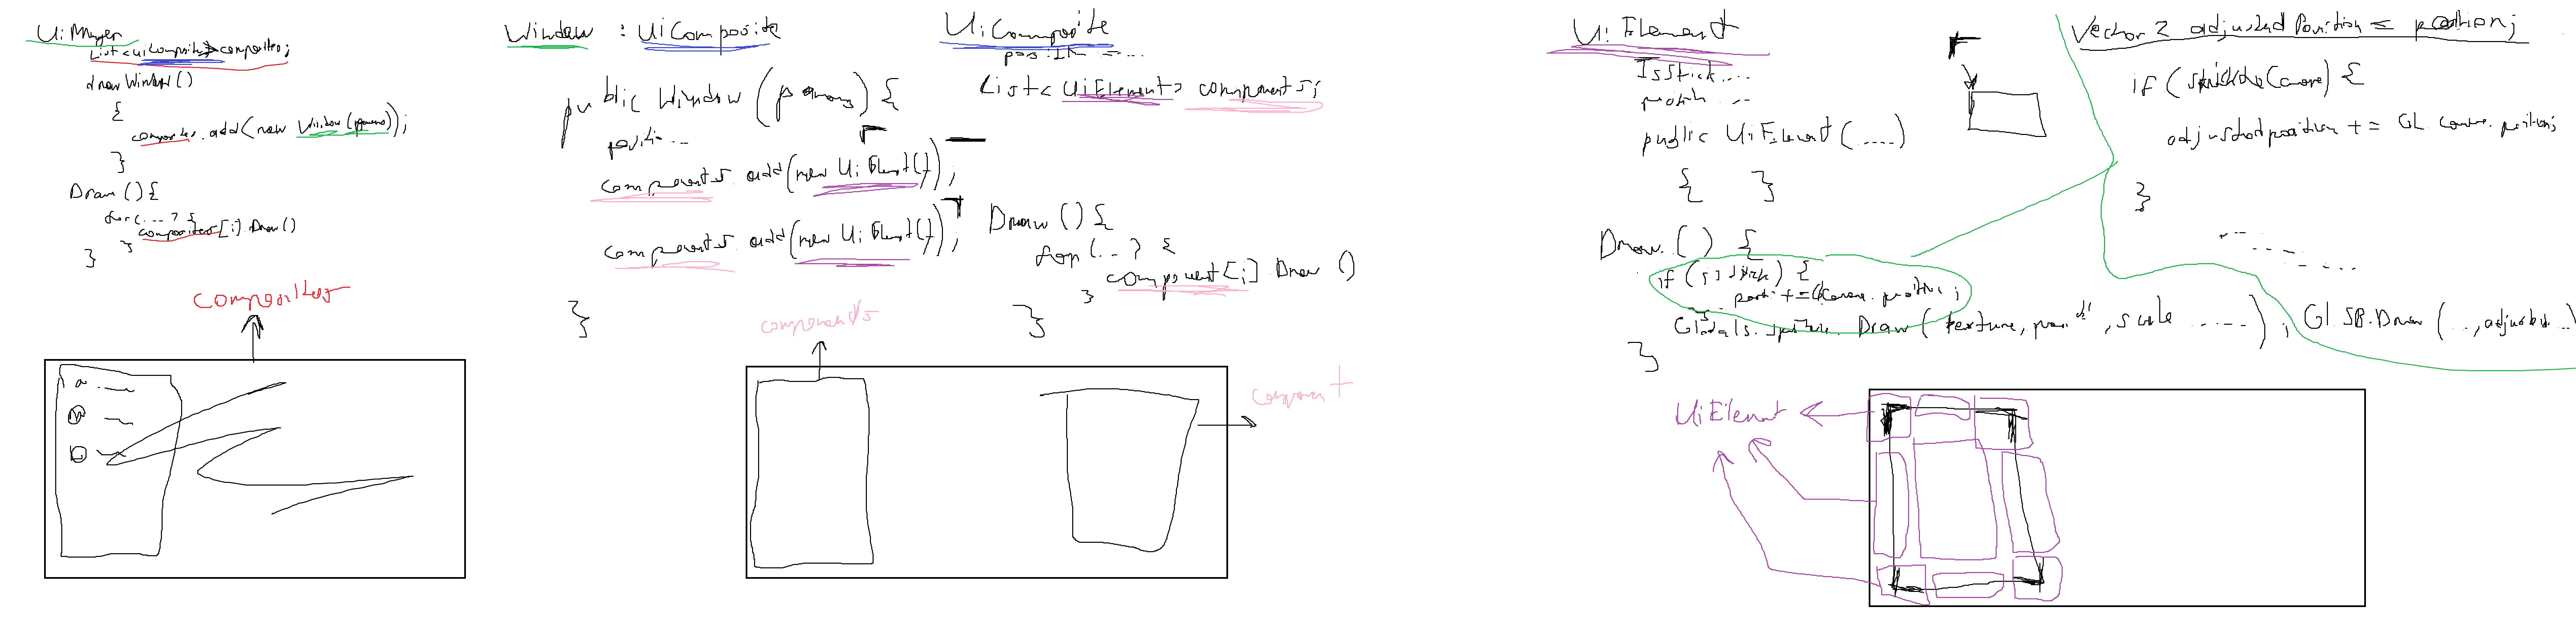 UiManager
List<uiComposite> composites;
drawWindow()
{
composites.add(new Window(params));
}
Draw(){
for(...?{
composites[i].Draw()
}
}
composites
Window : UiComposite
public Window(params){
position...
components.add(new UiElement());
components.add(new UiElement());
}
components
UiComposite
position =...
List<UiElement> components;
Draw(){
for(...?{
component[i].Draw()
}
}
component
UiElement
IsStick...
position...
public UiElement(....)
{ }
Draw.() {
if (isStick) {
position += camera.position;
}
Globals.spriteBatch.Draw(texture, position, scale .....);
}
UiElement
Vector2 adjustedPosition = position;
if (stickToCamera) {
adjustedposition += GL.camera.position;
}
GL.SB.Draw(..., adjusted...)